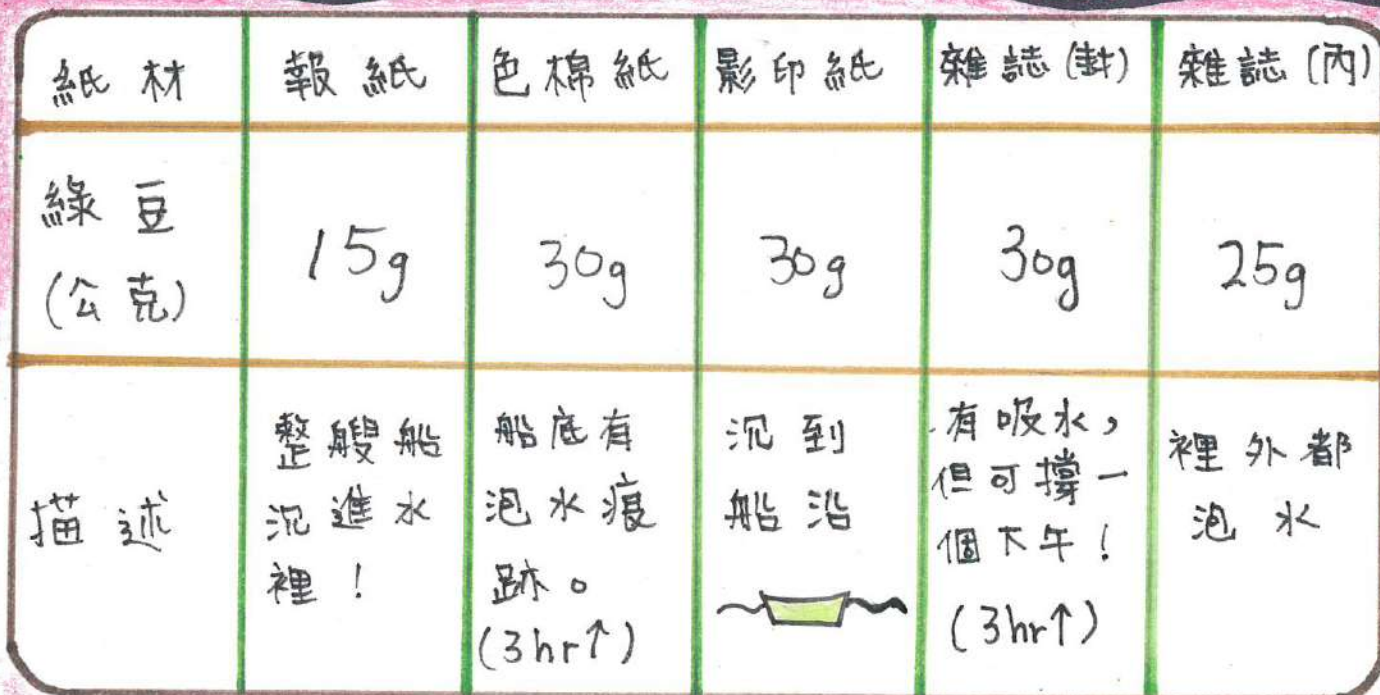 紙材
報紙
色棉紙
影印紙
雜誌(封)
雜誌(內)
綠豆
(公克)
15g
30g
30g
30g
25g
描述
整艘船
沉進水
裡！
船底有
泡水痕
跡。
(3hr↑)
沉到
船沿
有吸水，
但可撐一
個下午！
(3hr↑)
裡外都
泡水